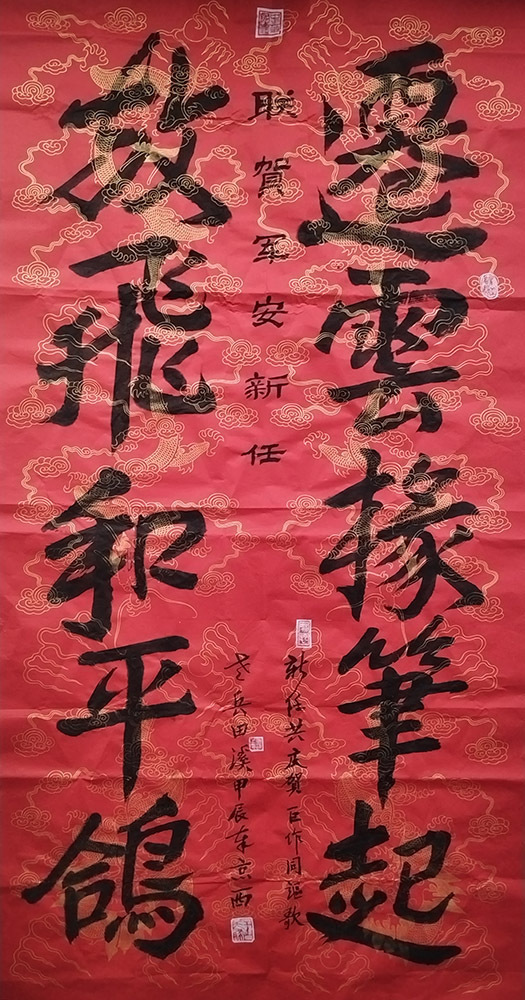 雲椽筆起
联賀軍安新任
放飛和平鴿
新任共庆贺 巨作同謳歌
老兵田溪甲辰年京西